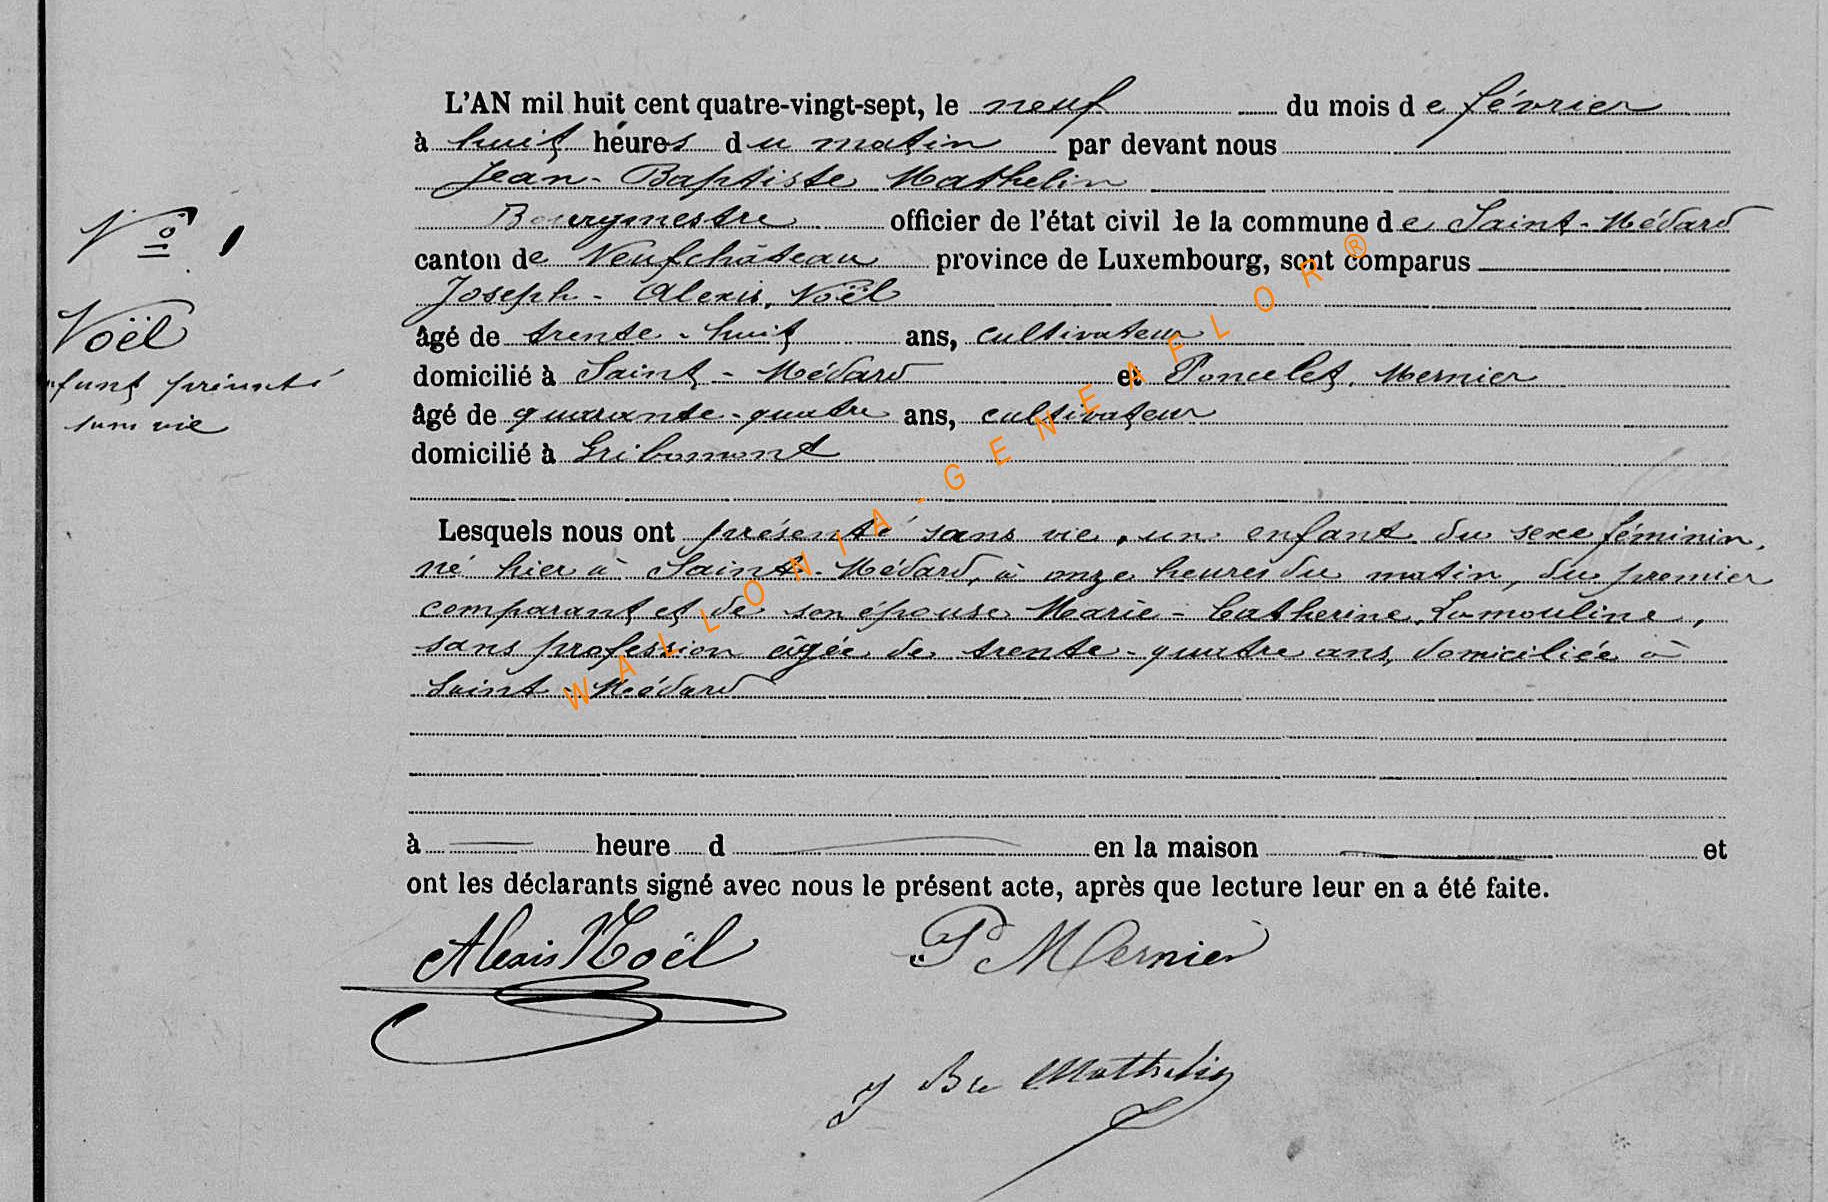 L'AN mil huit cent quatre-vingt-sept, le neuf du mois de février
à huit heures du matin par devant nous
Jean-Baptiste Mathelin
Bourgmestre officier de l'état civil de la commune de Saint-Médard
canton de Neufchâteau province de Luxembourg, sont comparus
Joseph-Alexis, Noël
âgé de trente-huit ans, cultivateur
domicilié à Saint-Médard et Poncelet, Mernier
âgé de quarante-quatre ans, cultivateur
domicilié à Gribomont
Lesquels nous ont présenté sans vie, un enfant du sexe féminin,
né hier à Saint-Médard, à onze heures du matin, du premier
comparant et de son épouse Marie-Catherine, Lamouline,
sans profession âgée de trente-quatre ans, domiciliée à
Saint-Médard
à heure d en la maison et
ont les déclarants signé avec nous le présent acte, après que lecture leur en a été faite.
Alexis Noël P Mernier
J Bte Mathelin
No 1
Noël
enfant présenté
sans vie
WALLONIA-GENEAFLOR®